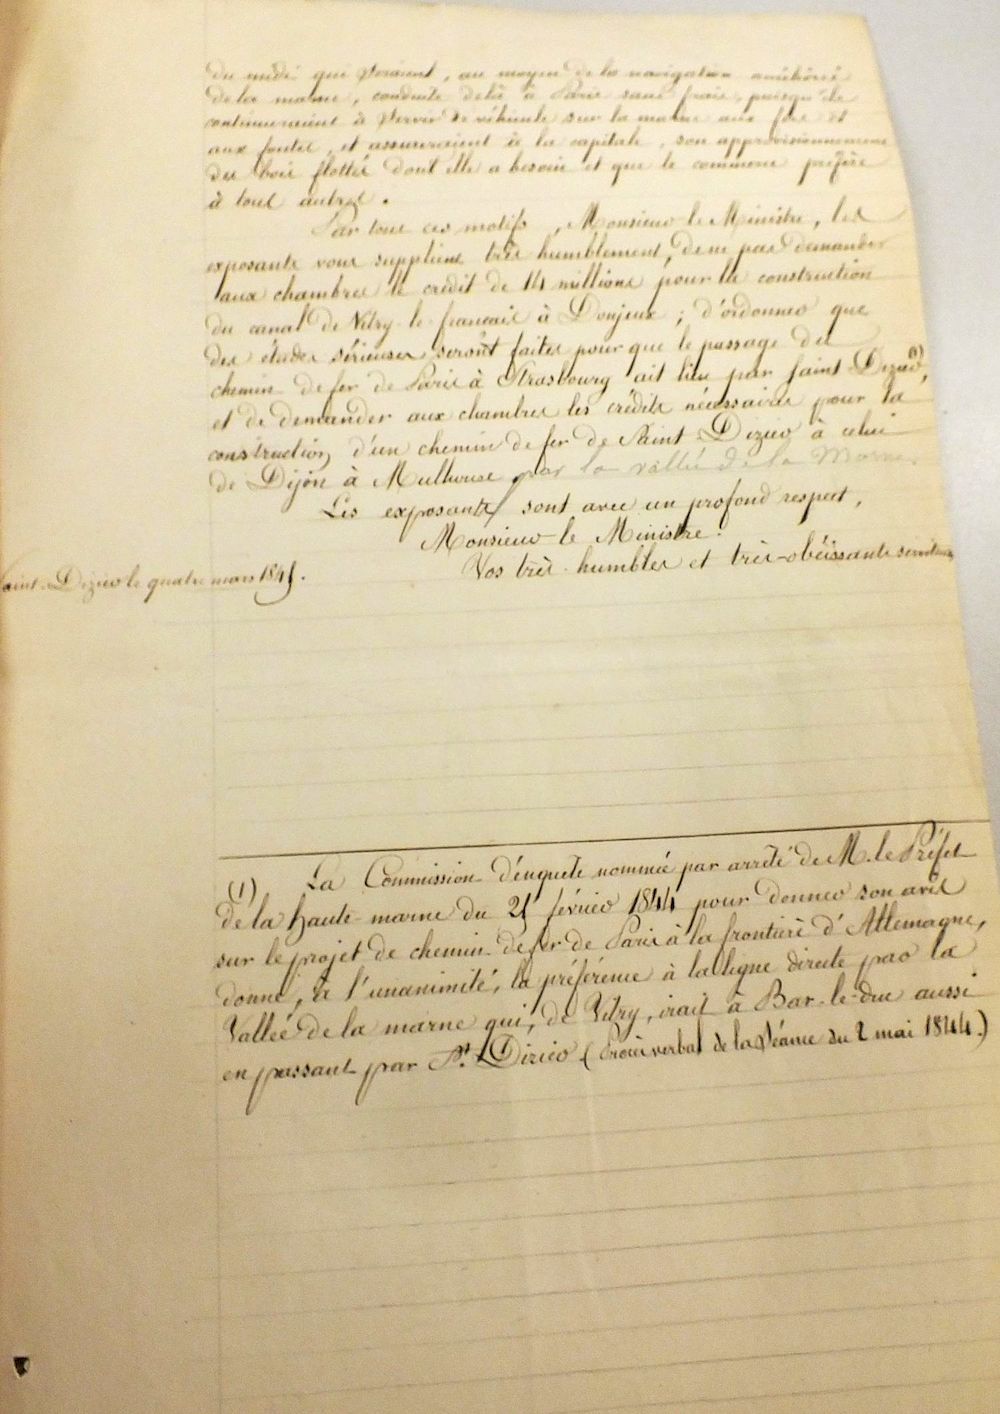 du midi qui seraient, au moyen de la navigation améliorée
de la marne, conduits delà à Paris sans frais, puisqu'ils
continueraient à servir de véhicule sur la marne aux fers et
aux fontes, et assureraient à la capitale, son approvisionnement
des bois flottés dont elle a besoin et que le commerce préfère
à tous autres.
Par tous ces motifs, Monsieur le Ministre, les
exposants vous supplient très humblement, de ne pas demander
aux chambres le crédit de 14 millions pour la construction
du canal de Vitry-le-français à Donjeux; d'ordonner que
des études sérieuses seront faites pour que le passage du
chemin de fer de Paris à Strasbourg ait lieu par Saint-Dizier (1),
et de demander aux chambres les crédits nécessaires pour la
construction d'un chemin de fer de Saint-Dizier à celui
de Dijon à Mulhouse par la vallée de la Marne.
Les exposants sont avec un profond respect,
Monsieur le Ministre.
Vos très-humbles et très-obéissants serviteurs
Saint-Dizier le quatre mars 1845.
(1) La Commission d'enquête nommée par arrêté de M. le Préfet
de la haute-marne du 25 février 1844 pour donner son avis
sur le projet de chemin de fer de Paris à la frontière d'Allemagne,
donne, à l'unanimité, la préférence à la ligne directe par la
Vallée de la marne qui, de Vitry, irait à Bar-le-duc aussi
en passant par St. Dizier (Procès verbal de la Séance du 2 mai 1844.)